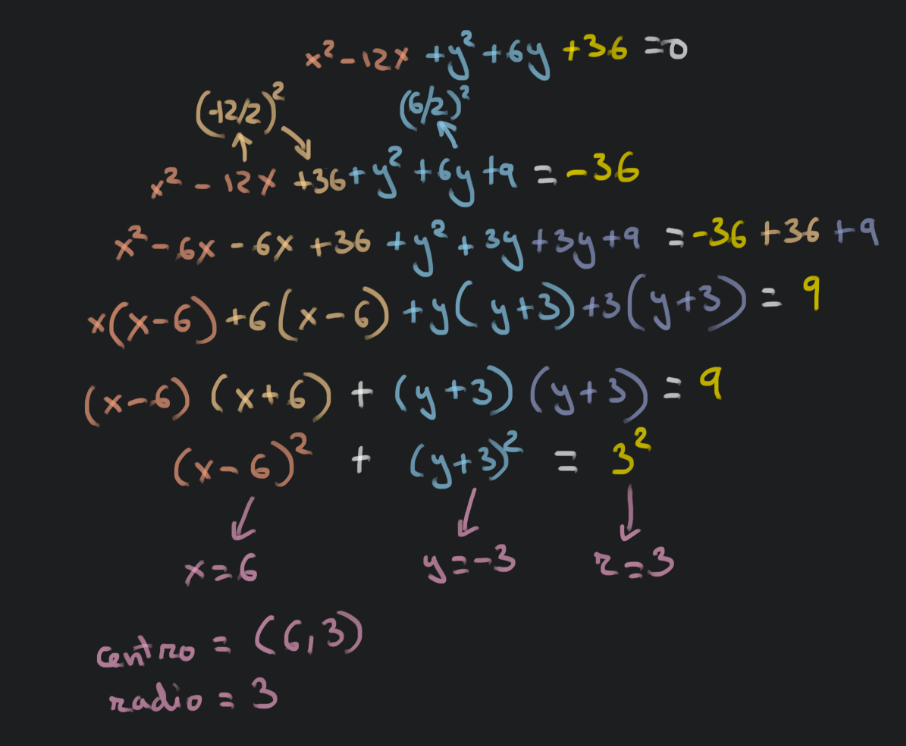 x² - 12x + y² + 6y + 36 = 0
(-12/2)² (6/2)²
x² - 12x + 36 + y² + 6y + 9 = -36
x² - 6x - 6x + 36 + y² + 3y + 3y + 9 = -36 + 36 + 9
x(x-6) + 6(x-6) + y(y+3) + 3(y+3) = 9
(x-6) (x+6) + (y+3) (y+3) = 9
(x-6)² + (y+3)² = 3²
x=6 y=-3 r=3
centro = (6,3)
radio = 3